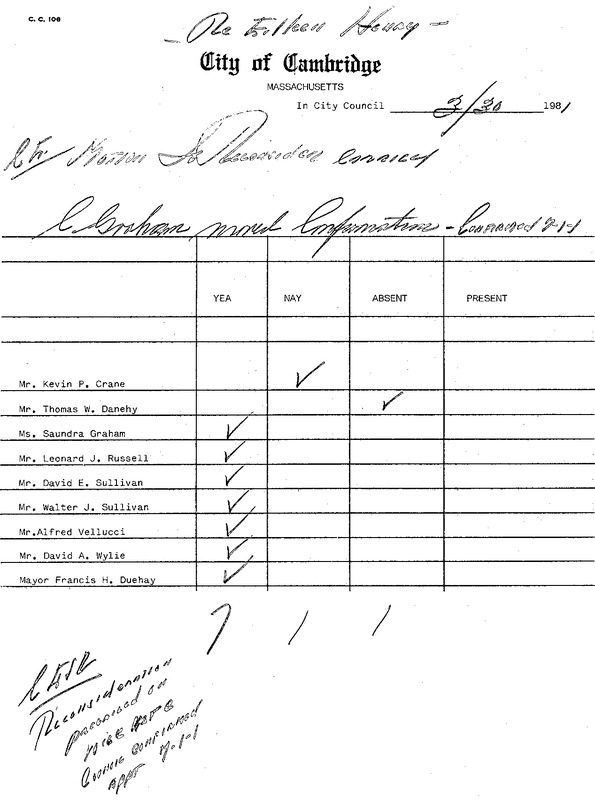 C. C. 100
Re Eileen Henry
City of Cambridge
MASSACHUSETTS
In City Council 3/30 1981
Motion To Reconsider carried
C. Graham moved Confirmation - Confirmed 7-1-1
YEA NAY ABSENT PRESENT
Mr. Kevin P. Crane ✓
Mr. Thomas W. Danehy ✓
Ms. Saundra Graham ✓
Mr. Leonard J. Russell ✓
Mr. David E. Sullivan ✓
Mr. Walter J. Sullivan ✓
Mr.Alfred Vellucci ✓
Mr. David A. Wylie ✓
Mayor Francis H. Duehay ✓
7 1 1
Reconsideration
prevailed on
voice vote
Council confirmed
appt 7-1-1